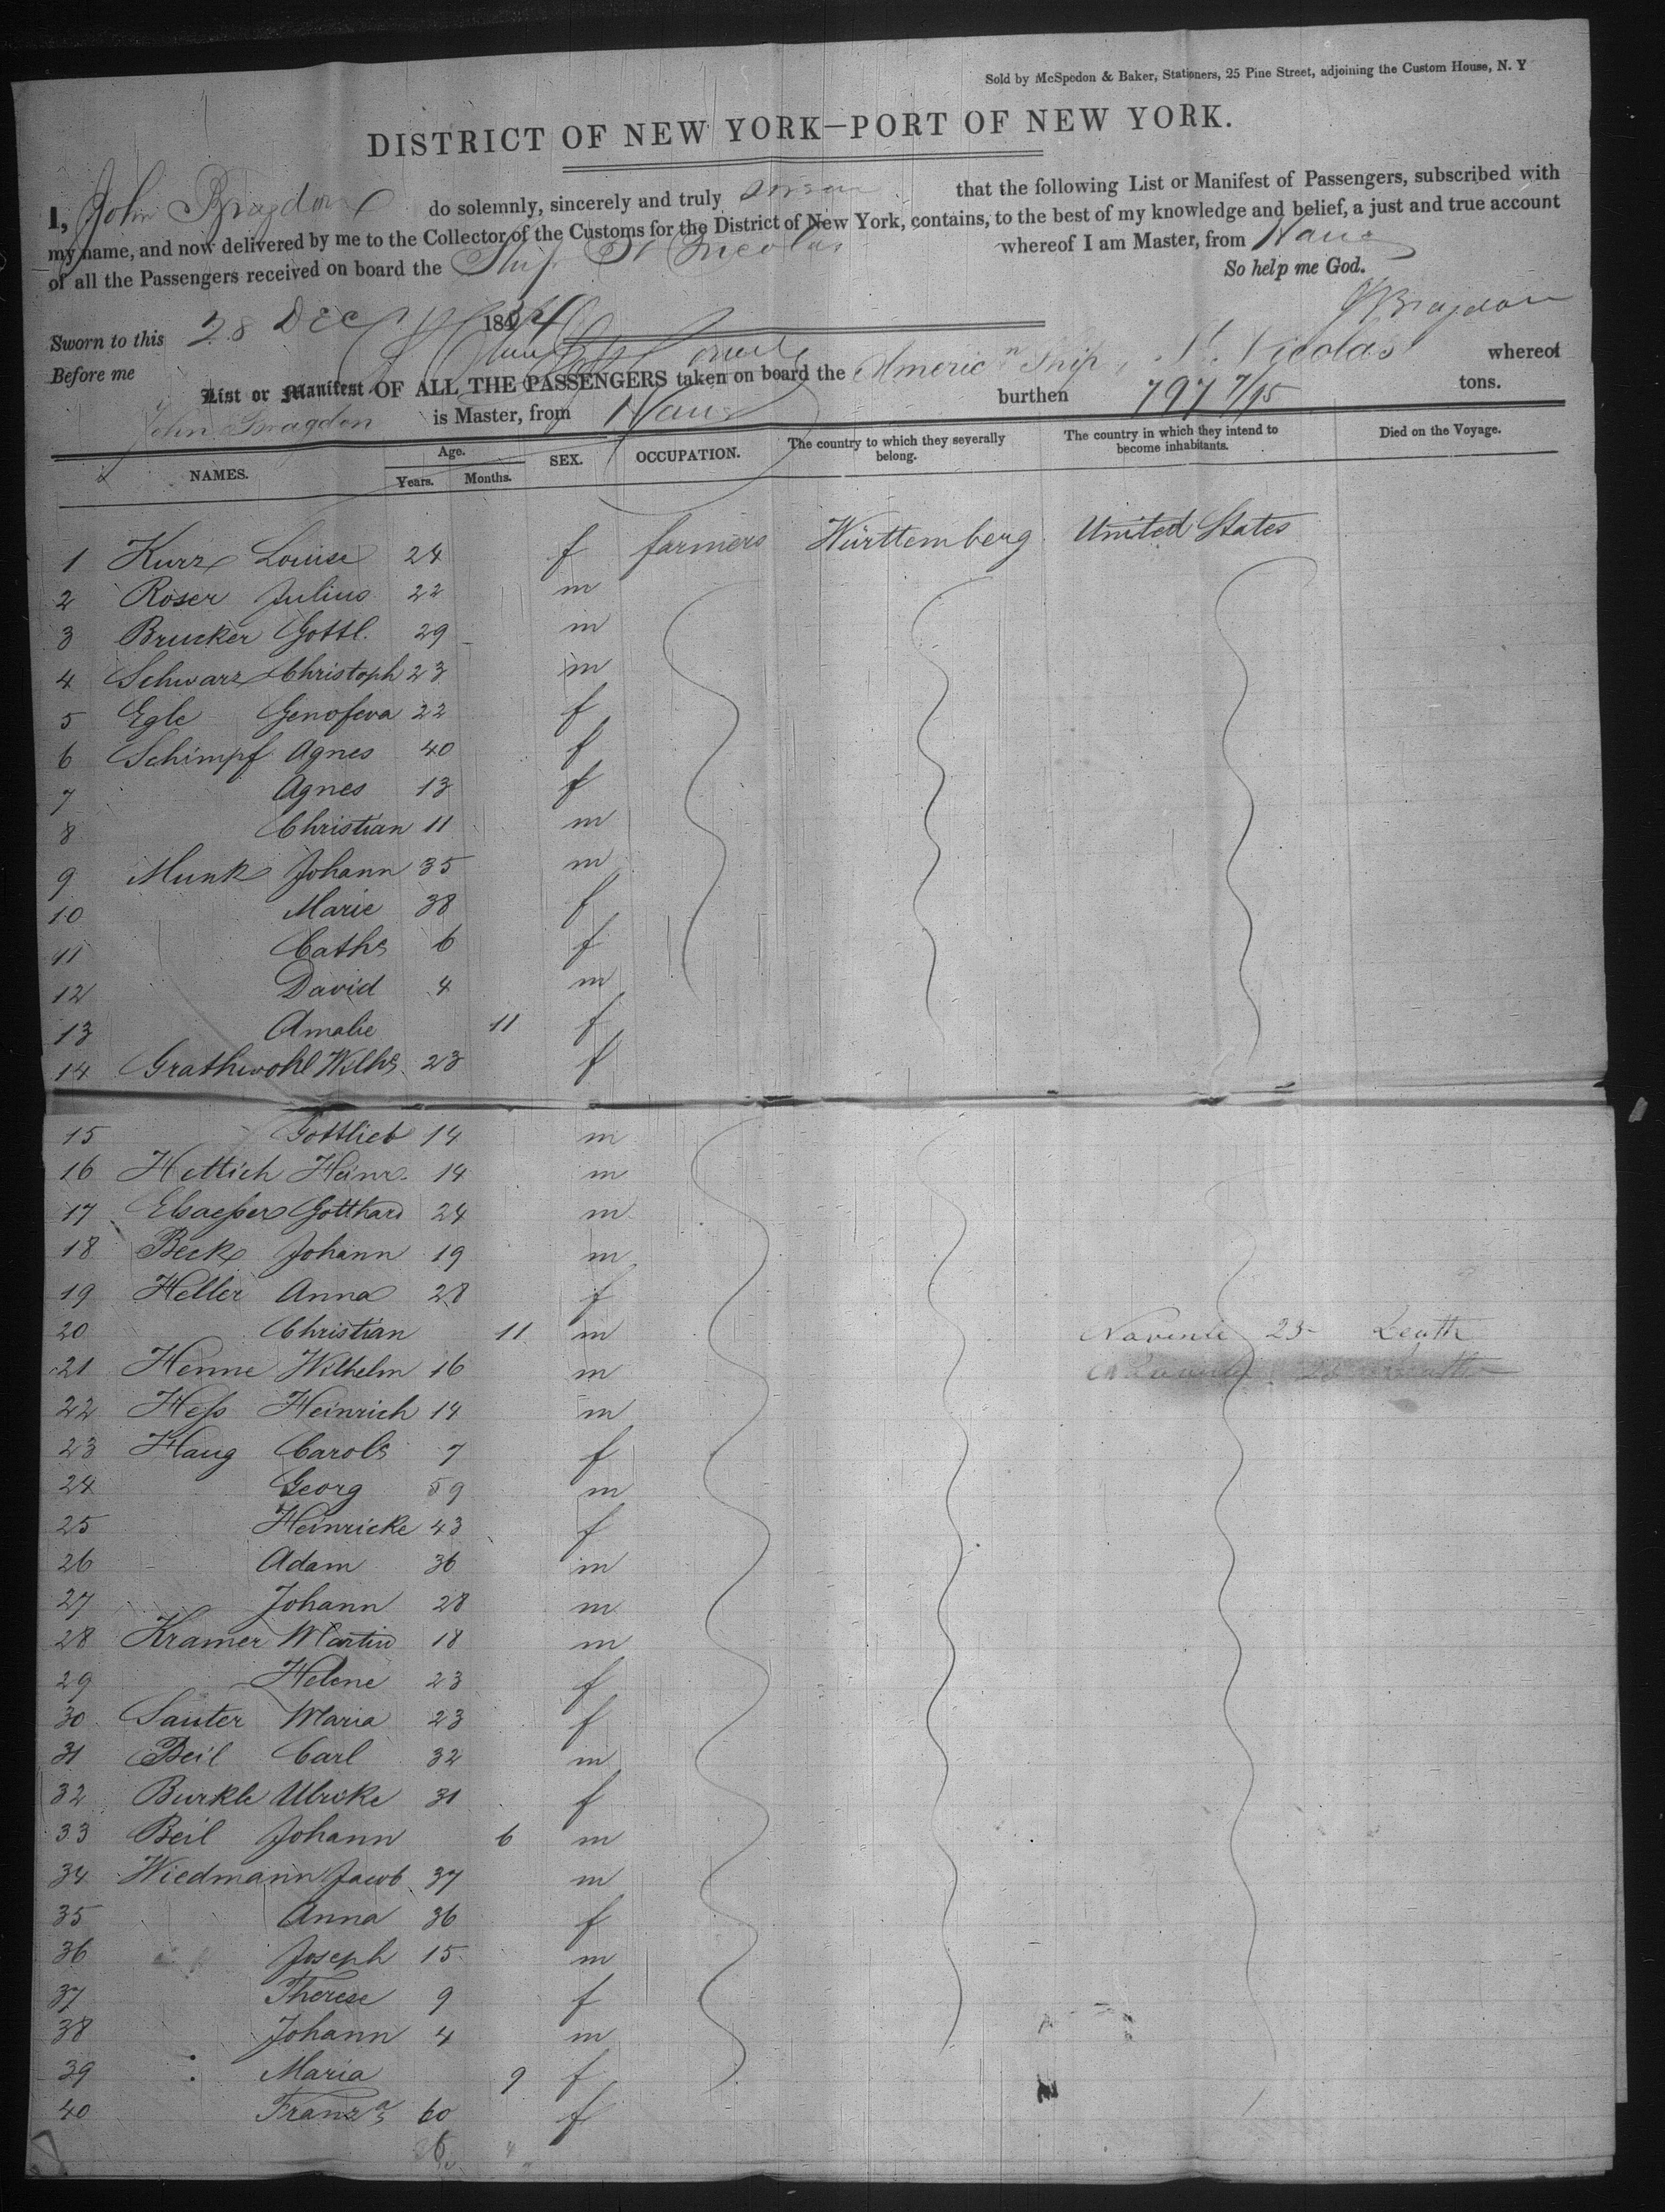 Sold by McSpedon & Baker, Stationers, 25 Pine Street, adjoining the Custom House, N. Y
DISTRICT OF NEW YORK—PORT OF NEW YORK.
I, John Bragdon do solemnly, sincerely and truly swear that the following List or Manifest of Passengers, subscribed with
my name, and now delivered by me to the Collector of the Customs for the District of New York, contains, to the best of my knowledge and belief, a just and true account
of all the Passengers received on board the Ship St Nicolas whereof I am Master, from Havre
So help me God.
Sworn to this 28 Dec 185
J Bragdon
Before me
List or Manifest OF ALL THE PASSENGERS taken on board the Americn Ship St. Nicolas whereof
John Bragdon is Master, from Havre burthen 797 7/95 tons.
NAMES. Age. Years. Months. SEX. OCCUPATION. The country to which they severally belong. The country in which they intend to become inhabitants. Died on the Voyage.
1 Kurz Louise 24 f farmers Württemberg United States
2 Roser Julius 22 m
3 Brucker Gottl. 29 m
4 Schwarz Christoph 23 m
5 Egle Genofeva 22 f
6 Schimpf Agnes 40 f
7 Agnes 13 f
8 Christian 11 m
9 Munk Johann 35 m
10 Marie 38 f
11 Cathe 6 f
12 David 4 m
13 Amalie 11 f
14 Grathwohl Wilhe 23 f
15 Gottlieb 14 m
16 Hettich Heinr. 14 m
17 Gotthard 24 m
18 Beck Johann 19 m
19 Heller Anna 28 f
20 Christian 11 m 23 Death
21 Henne Wilhelm 16 m
22 Heß Heinrich 14 m
23 Haug Carole 7 f
24 Georg 59 m
25 Heinricke 43 f
26 Adam 36 m
27 Johann 28 m
28 Kramer Martin 18 m
29 Helene 23 f
30 Sauter Maria 23 f
31 Beil Carl 32 m
32 Burkle Ulrike 31 f
33 Beil Johann 6 m
34 Wiedmann Jacob 37 m
35 Anna 36 f
36 Joseph 15 m
37 Therese 9 f
38 Johann 4 m
39 Maria 9 f
40 Franza 60 f